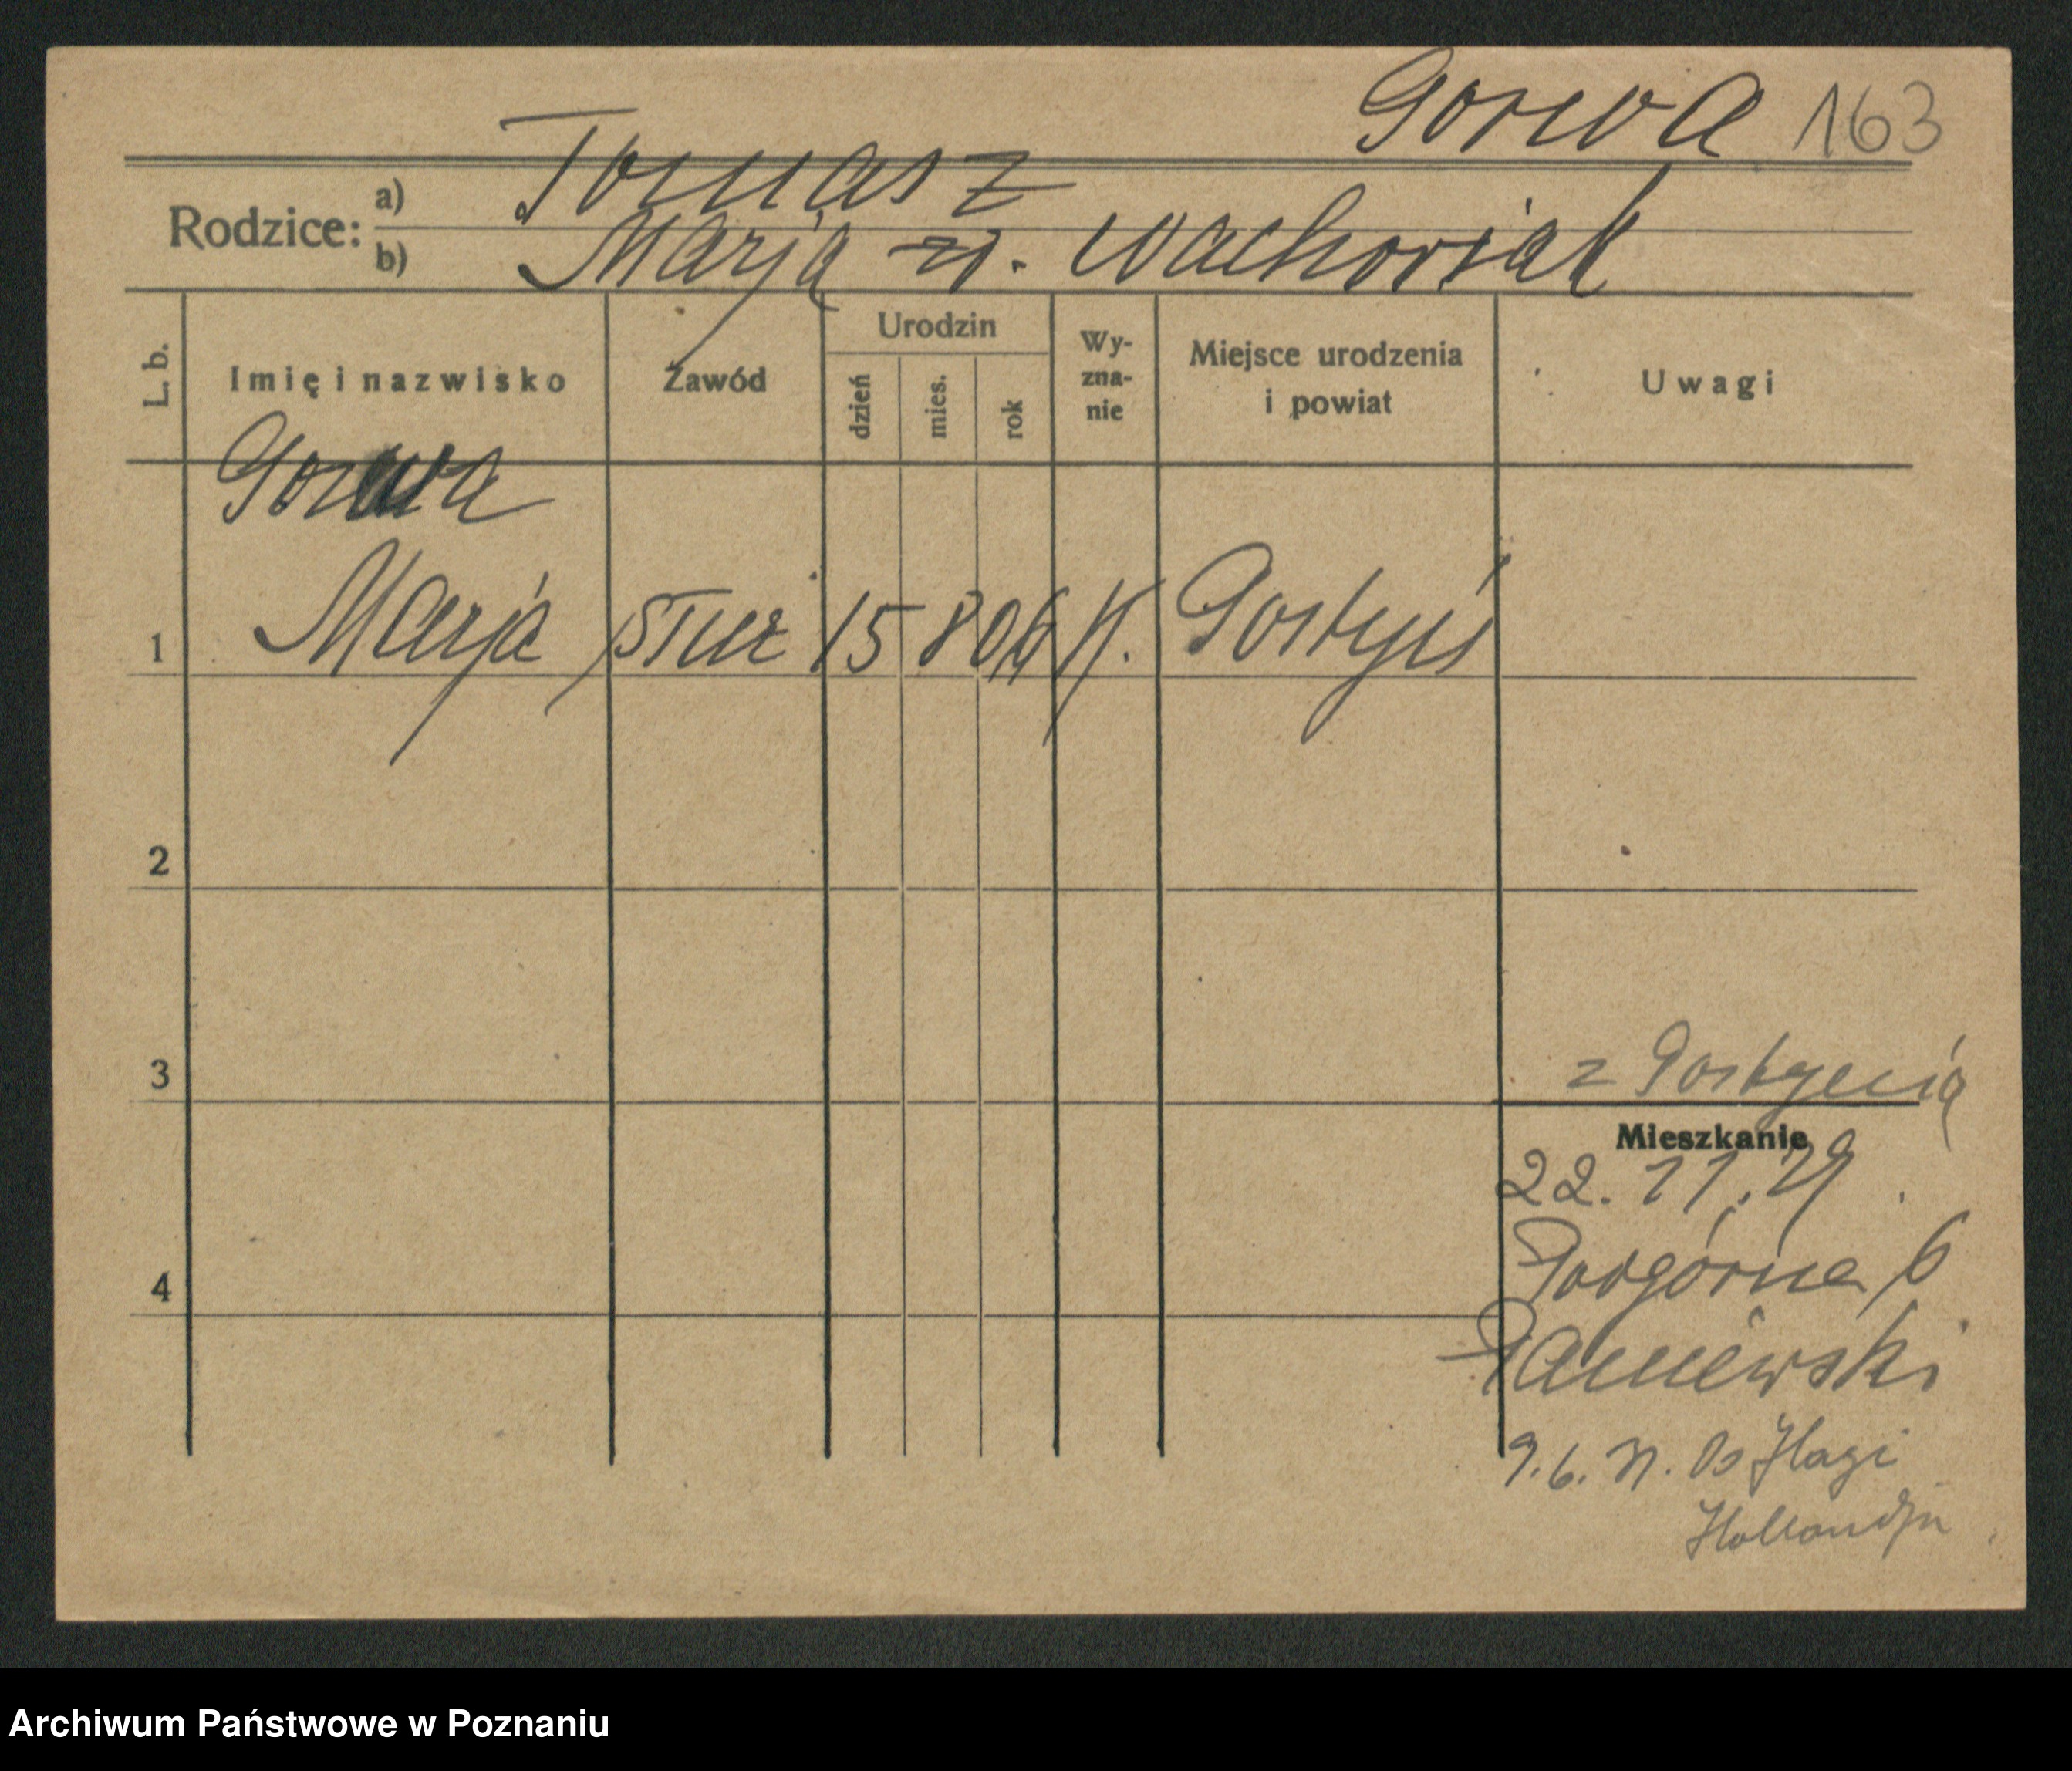 Gorwa 163
Tomasz
Rodzice:
a)
b)
Marja z d. Wachowiak
L. b.
Imię i nazwisko
Zawód
Urodzin
dzień
mies.
rok
Wy-
zna-
nie
Miejsce urodzenia
i powiat
Uwagi
Gorwa
1 Marja służ 15 8 06 K. Gostyń
2
3
z Gostynia
Mieszkanie
22. 11. 29
4
Podgórna 6
Paniewski
9. 6. 31. Do Hagi
Hollandja
Archiwum Państwowe w Poznaniu